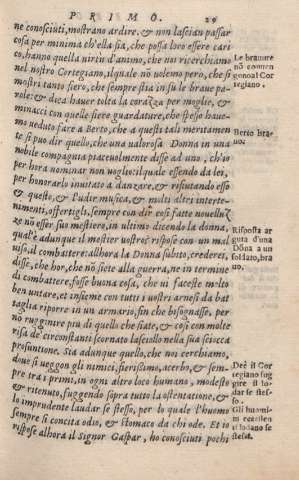 PRIMO. 29
ne conosciuti, mostrano ardire. & non lascian passar
cosa per minima ch'ella sia, che possa loro essere cari-
co, hanno quella virtù d'animo, che noi ricerchiamo
nel nostro Cortegiano, ilquale nò volemo però, che si
mostri tanto fiero, che sempre stia in su le braue pa-
role: & dica hauer tolta la corazza per moglie, &
minacci con quelle fiere guardature, che spesso haue-
mo veduto fare a Berto, che a questi tali meritamen
te si può dir quello, che una valorosa Donna in una
nobile compagnia piaceuolmente disse ad uno, ch'io
per hora nominar non voglio: il quale essendo da lei,
per honorarlo inuitato a danzare, & rifiutando esso
& questo, & l'udir musica, & molti altri interte-
nimenti, offertigli, sempre con dir cosi fatte nouelluz
ze nõ esser suo mestiero, in ultimo dicendo la donna,
qual'è adunque il mestier vostro? rispose con un mal
viso, il combattere: allhora la Donna subito, crederei,
disse, che hor, che nõ siete alla guerra, ne in termine
di combattere, fosse buona cosa, che vi faceste molto
ben untare, et insieme con tutti i vostri arnesi da bat
taglia riporre in un armario, fin che bisognasse, per
nò rugginire più di quello che siate, & cosi con molte
risa de' circonstanti scornato lasciollo nella sua sciocca
prosuntione. Sia adunque quello, che noi cerchiamo,
doue si veggon gli nimici, fierissimo, acerbo, & sem-
pre tra i primi, in ogni altro loco humano, modesto
& ritenuto, fuggendo sopra tutto la ostentatione, &
lo imprudente laudar se stesso, per lo quale l'huomo
sempre si concita odio, & stomaco da chi ode. Et io
rispose alhora il Signor Gaspar, ho conosciuti pochi
Le brauure
nõ conuen
gono al Cor
tegiano.
Berto bra-
uo.
Risposta ar
guta d'una
Dõna a un
soldato, bra
uo.
Deè il Cor
tegiano fug
gire il lo-
dar se stes-
so.
Gli huomi-
ni eccellen
ti lodano se
stessi.